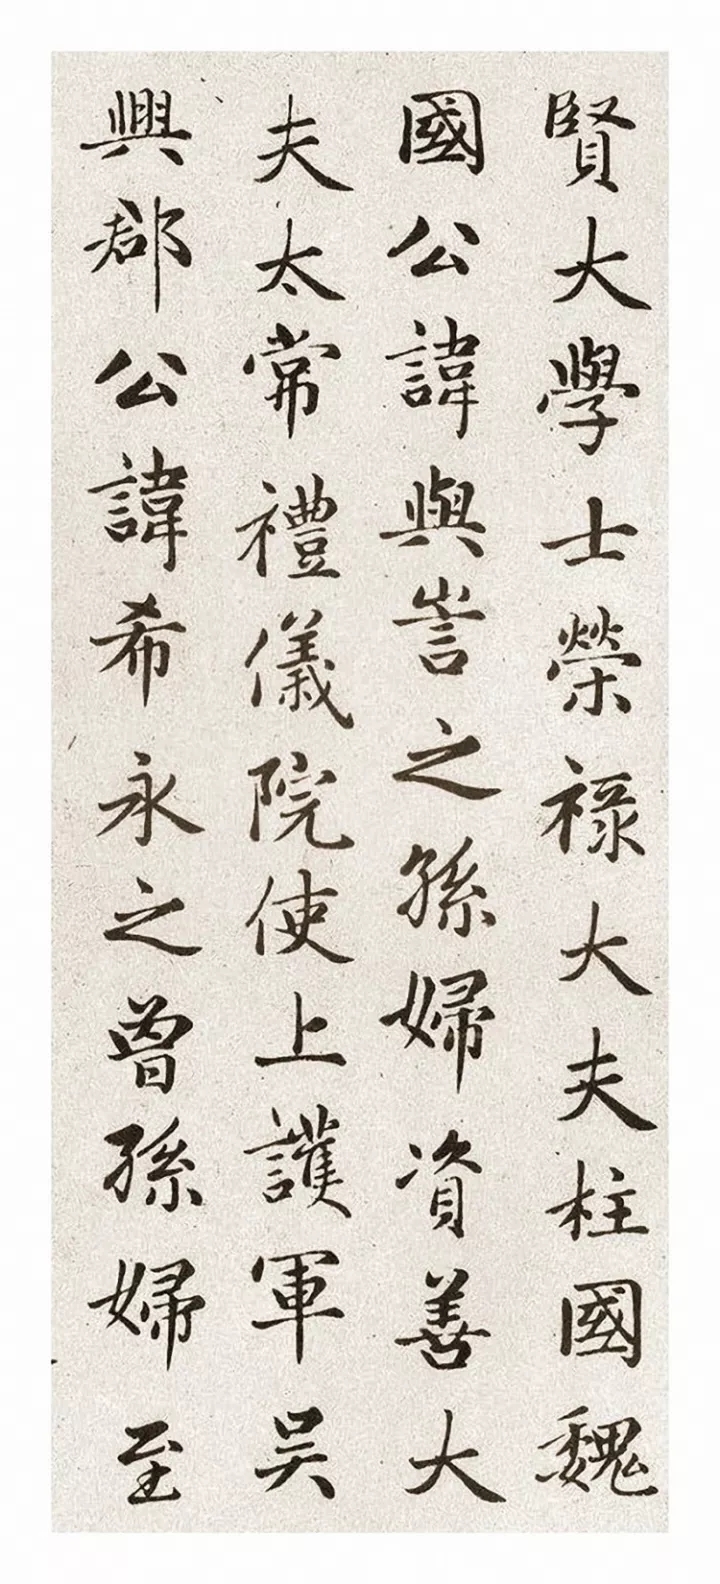 賢大學士榮祿大夫柱國魏
國公諱與訔之孫婦資善大
夫太常禮儀院使上護軍吴
興郡公諱希永之曾孫婦至